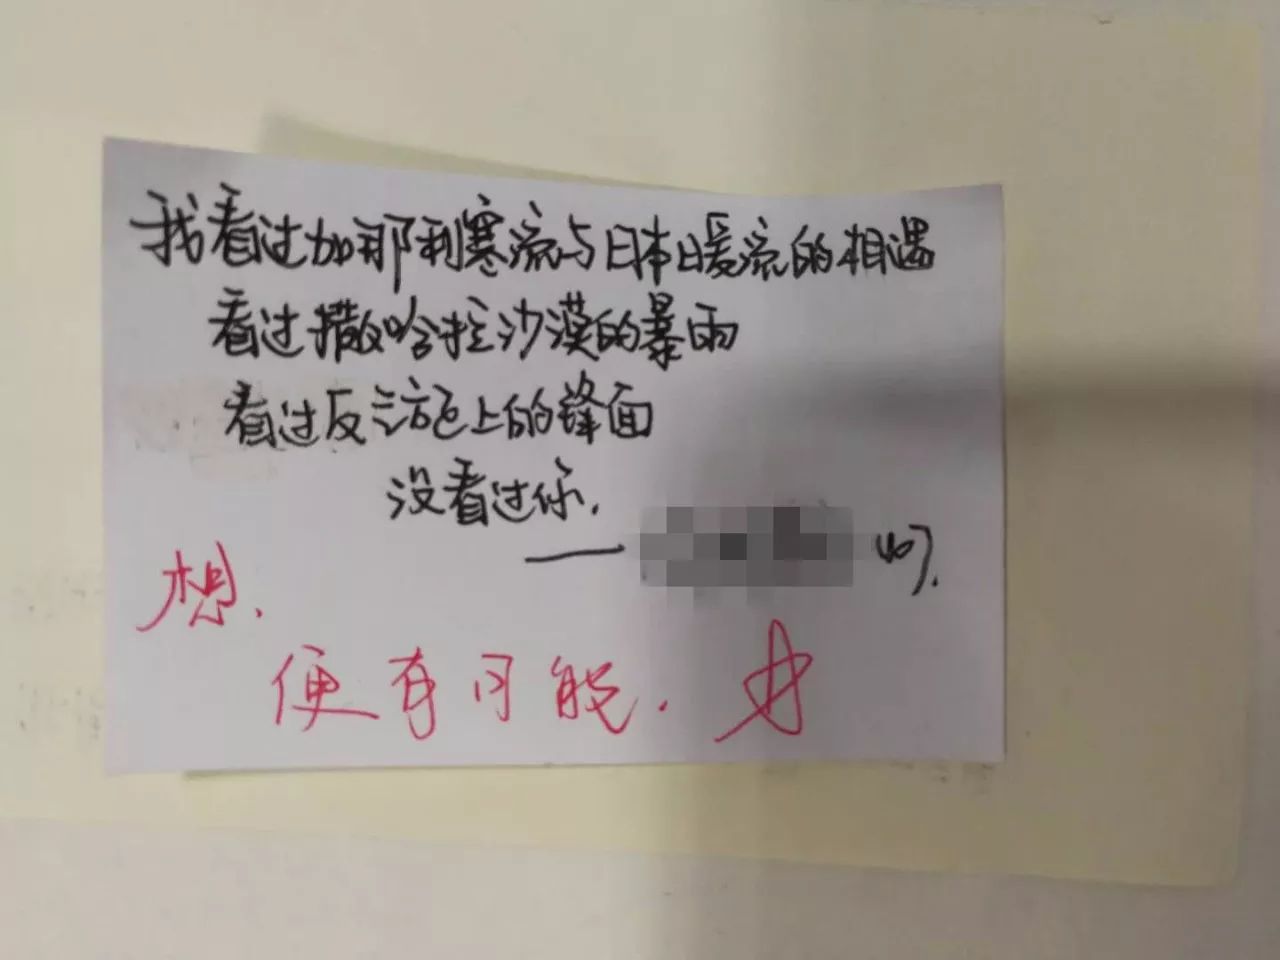 我看过加那利寒流与日本暖流的相遇
看过撒哈拉沙漠的暴雨
看过反气旋上的锋面
没看过你.
想.
便有可能.